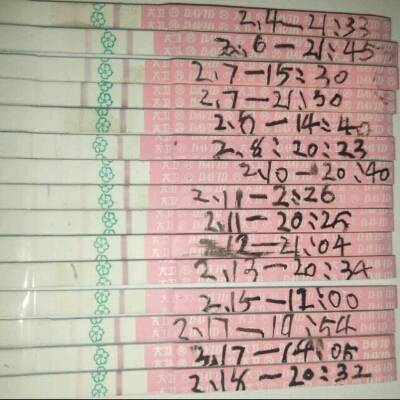 2.4-21:33
2.6-21:45
2.7-15:30
2.7-21:30
2.8-14:40
2.8:20:23
2.10-20:40
2.11-2:26
2.11-20:25
2.12-21:04
2.13-20:34
2.15-17:00
2.17-19:54
2.17-14:05
2.18-20:32
大卫 DAVID